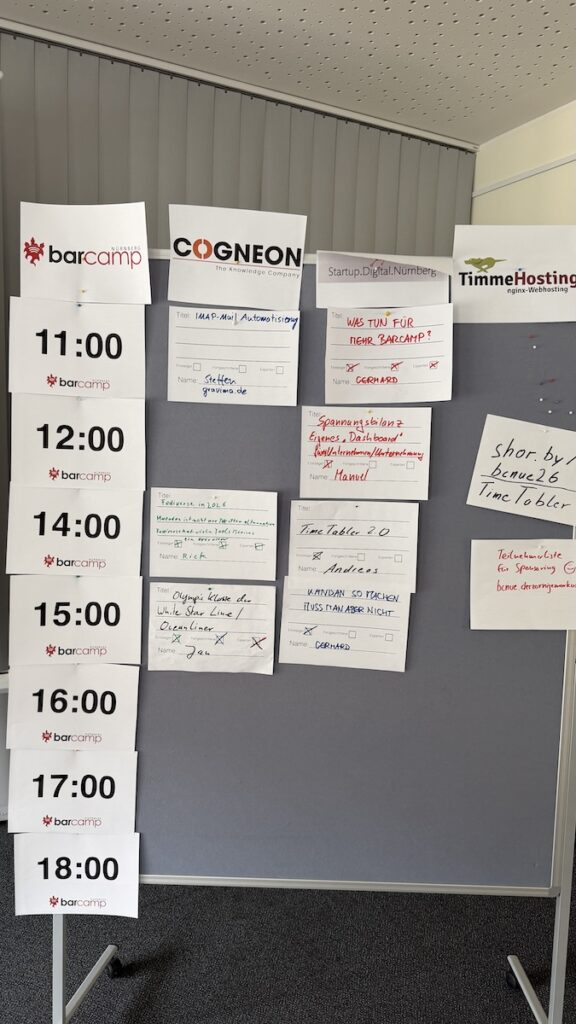 NÜRNBERG
barcamp
COGNEON
The Knowledge Company
Startup.Digital.Nürnberg
TimmeHosting
nginx-Webhosting
11:00
barcamp
Titel: IMAP-Mail Automatisierung
Einsteiger Fortgeschrittene Experten
Name: Steffen
gravima.de
Titel:
WAS TUN FÜR
MEHR BARCAMP?
Einsteiger Fortgeschrittene Experten
Name: GERHARD
12:00
barcamp
Titel: Spannungsbilanz
Eigenes "Dashboard"
Einsteiger Fortgeschrittene Experten
Name: Manuel
shor.by/
bcnue26
TimeTabler
14:00
barcamp
Titel:
Fediverse in 2026
Mastodon ist nicht nur Twitter alternative
Einsteiger Fortgeschrittene Experten
Name: Rick
Titel:
TimeTabler 2.0
Einsteiger Fortgeschrittene Experten
Name: Andreas
Teilnehmerliste
für Sponsoring
15:00
barcamp
Titel: Olympic Klasse der
White Star Line/
Oceanliner
Einsteiger Fortgeschrittene Experten
Name: Jan
KANN SO MACHEN
MUSS MAN ABER NICHT
Einsteiger Fortgeschrittene Experten
Name: GERHARD
16:00
barcamp
17:00
barcamp
18:00
barcamp